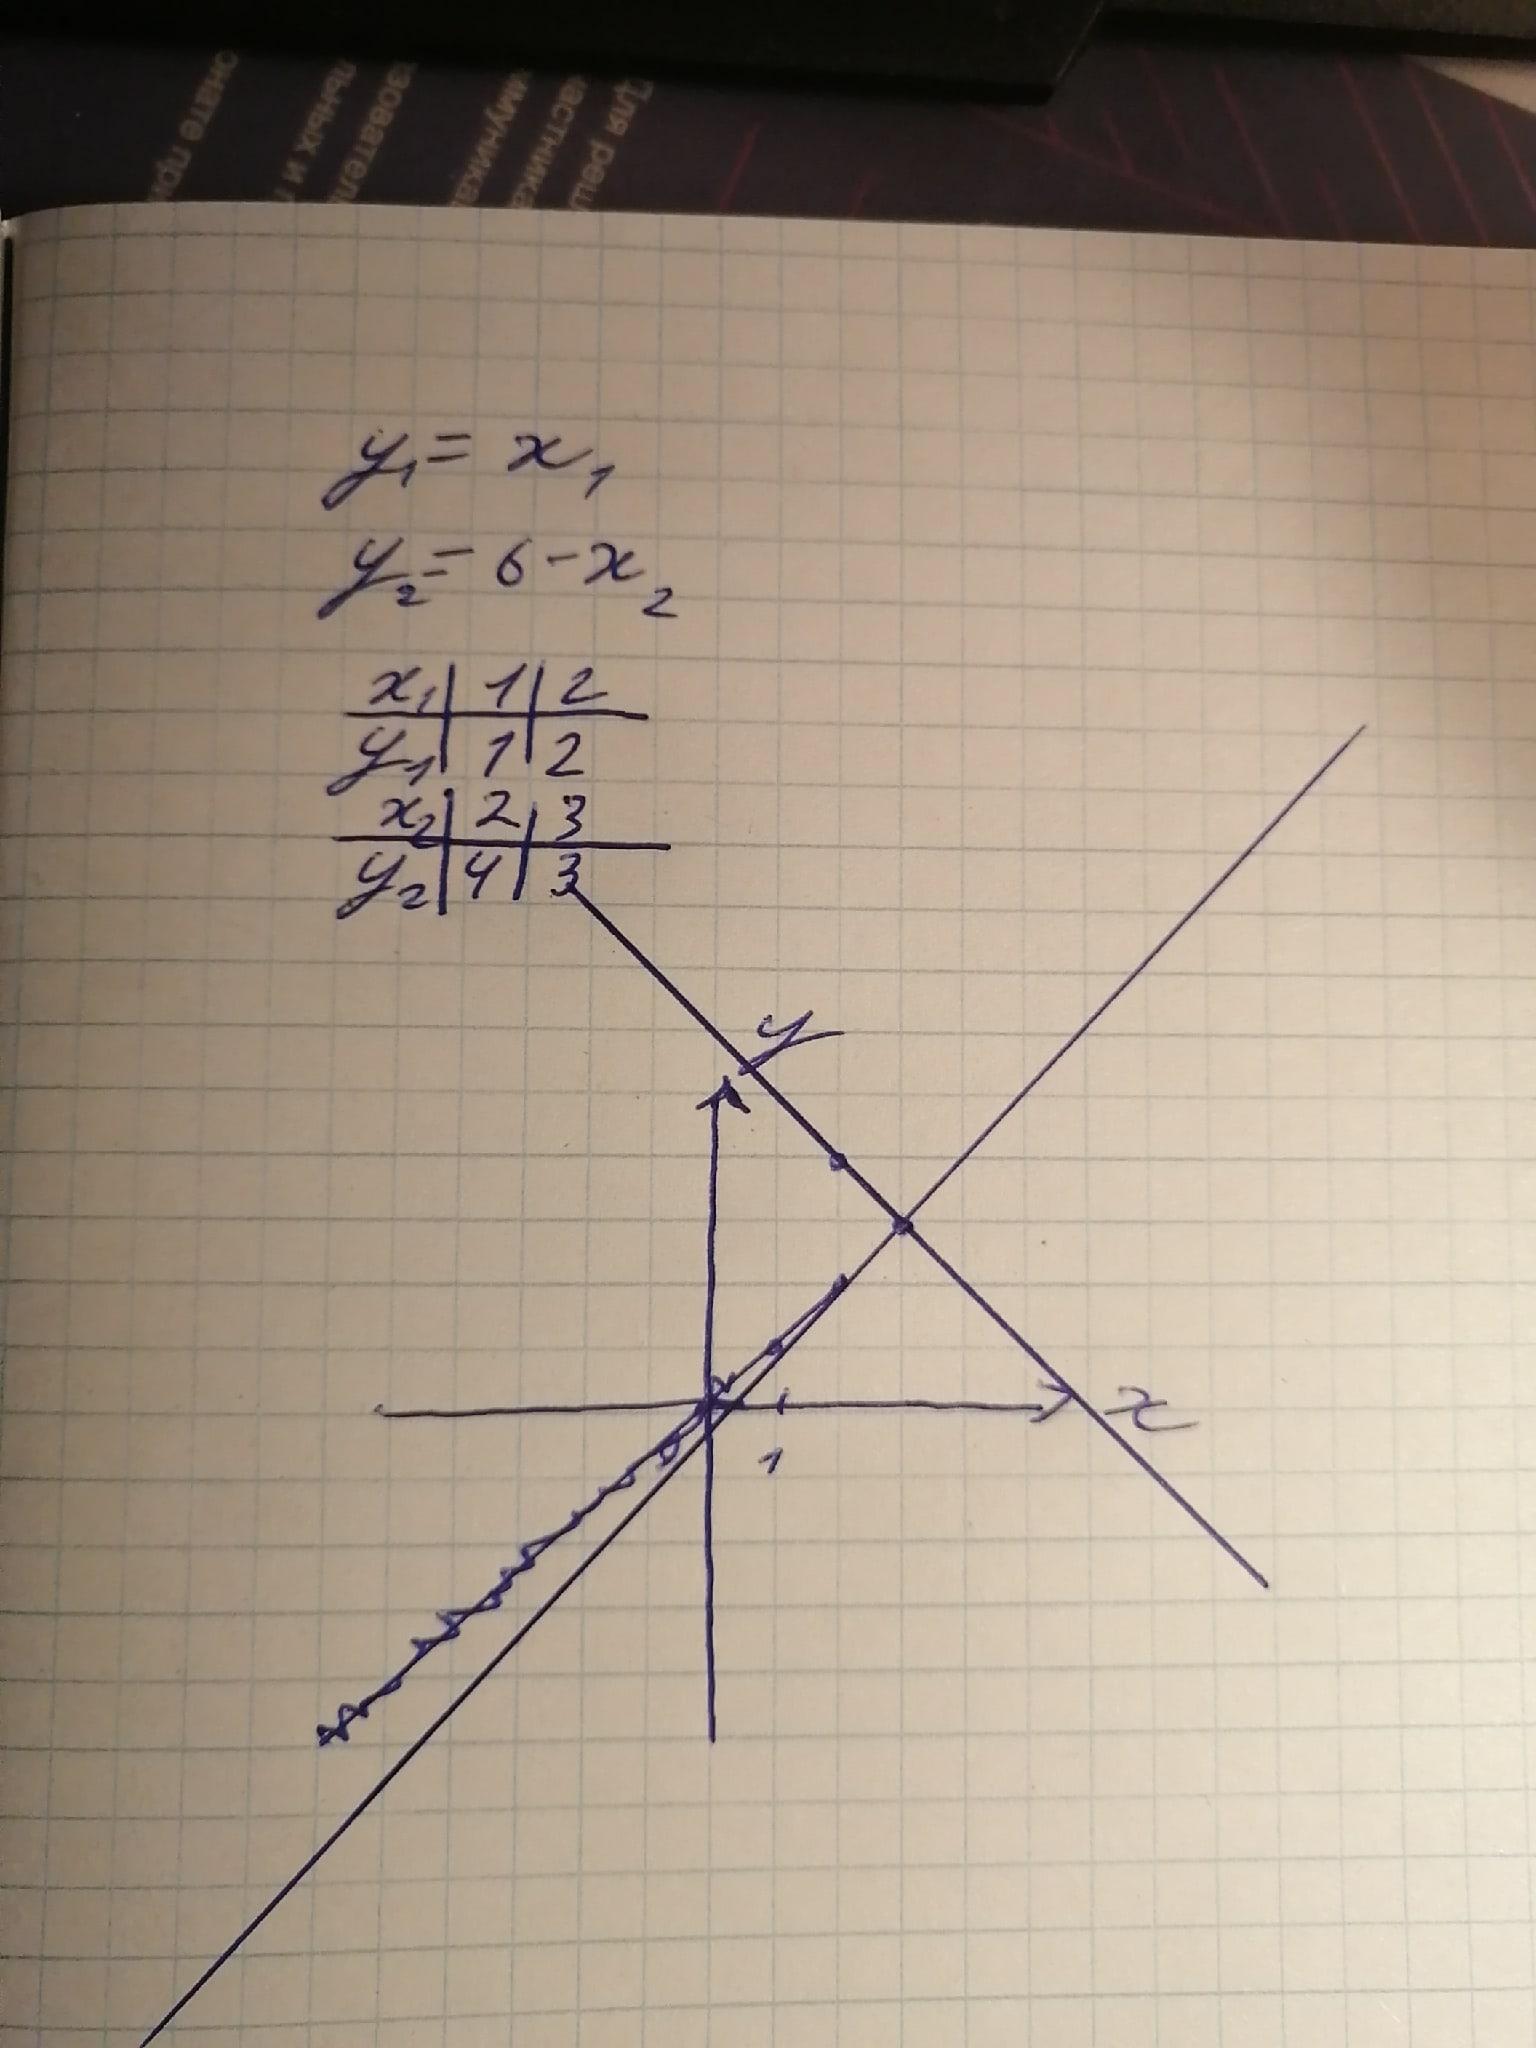 Для реш
частника
ммуника
зовател
льных и
онате пр
y₁ = x₁
y₂ = 6 - x₂
x₁ | 1 | 2
y₁ | 1 | 2
x₂ | 2 | 3
y₂ | 4 | 3
y
x
1